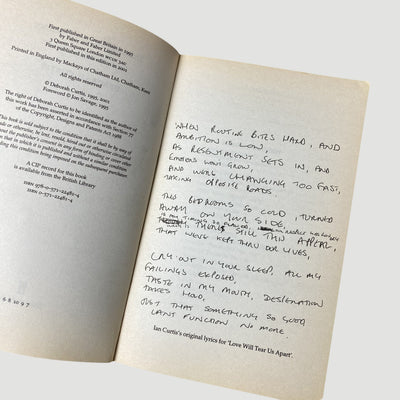 First published in Great Britain in 1995
by Faber and Faber Limited
3 Queen Square London WC1N 3AU
First published in this edition in 2001
Printed in England by Mackays of Chatham Ltd, Chatham, Kent
All rights reserved
© Deborah Curtis, 1995, 2001
Foreword © Jon Savage, 1995
The right of Deborah Curtis to be identified as author of
this work has been asserted in accordance with Section 77
of the Copyright, Designs and Patents Act 1988
This book is sold subject to the condition that it shall not, by way of
trade or otherwise, be lent, resold, hired out or otherwise circulated
without the publisher's consent in any form of binding or cover other
than that in which it is published and without a similar condition
including this condition being imposed on the subsequent purchaser
A CIP record for this book
is available from the British Library
ISBN 0-571-
WHEN ROUTINE BITES HARD, AND
AMBITION IS LOW,
AS RESENTMENT SETS IN, AND
EMOTIONS WONT GROW,
AND WERE CHANGING TOO FAST,
TAKING OPPOSITE ROADS.
THIS BEDROOMS SO COLD, TURNED
AWAY ON YOUR SIDE,
IS MY TIMING
THERES STILL THIS APPEAL,
THAT WEVE KEPT THRU OUR LIVES,
CRY OUT IN YOUR SLEEP, ALL MY
FAILINGS EXPOSED,
TASTE IN MY MOUTH, DESPERATION
TAKES HOLD,
JUST THAT SOMETHING SO GOOD
CANT FUNCTION NO MORE.
Ian Curtis's original lyrics for 'Love Will Tear Us Apart'.